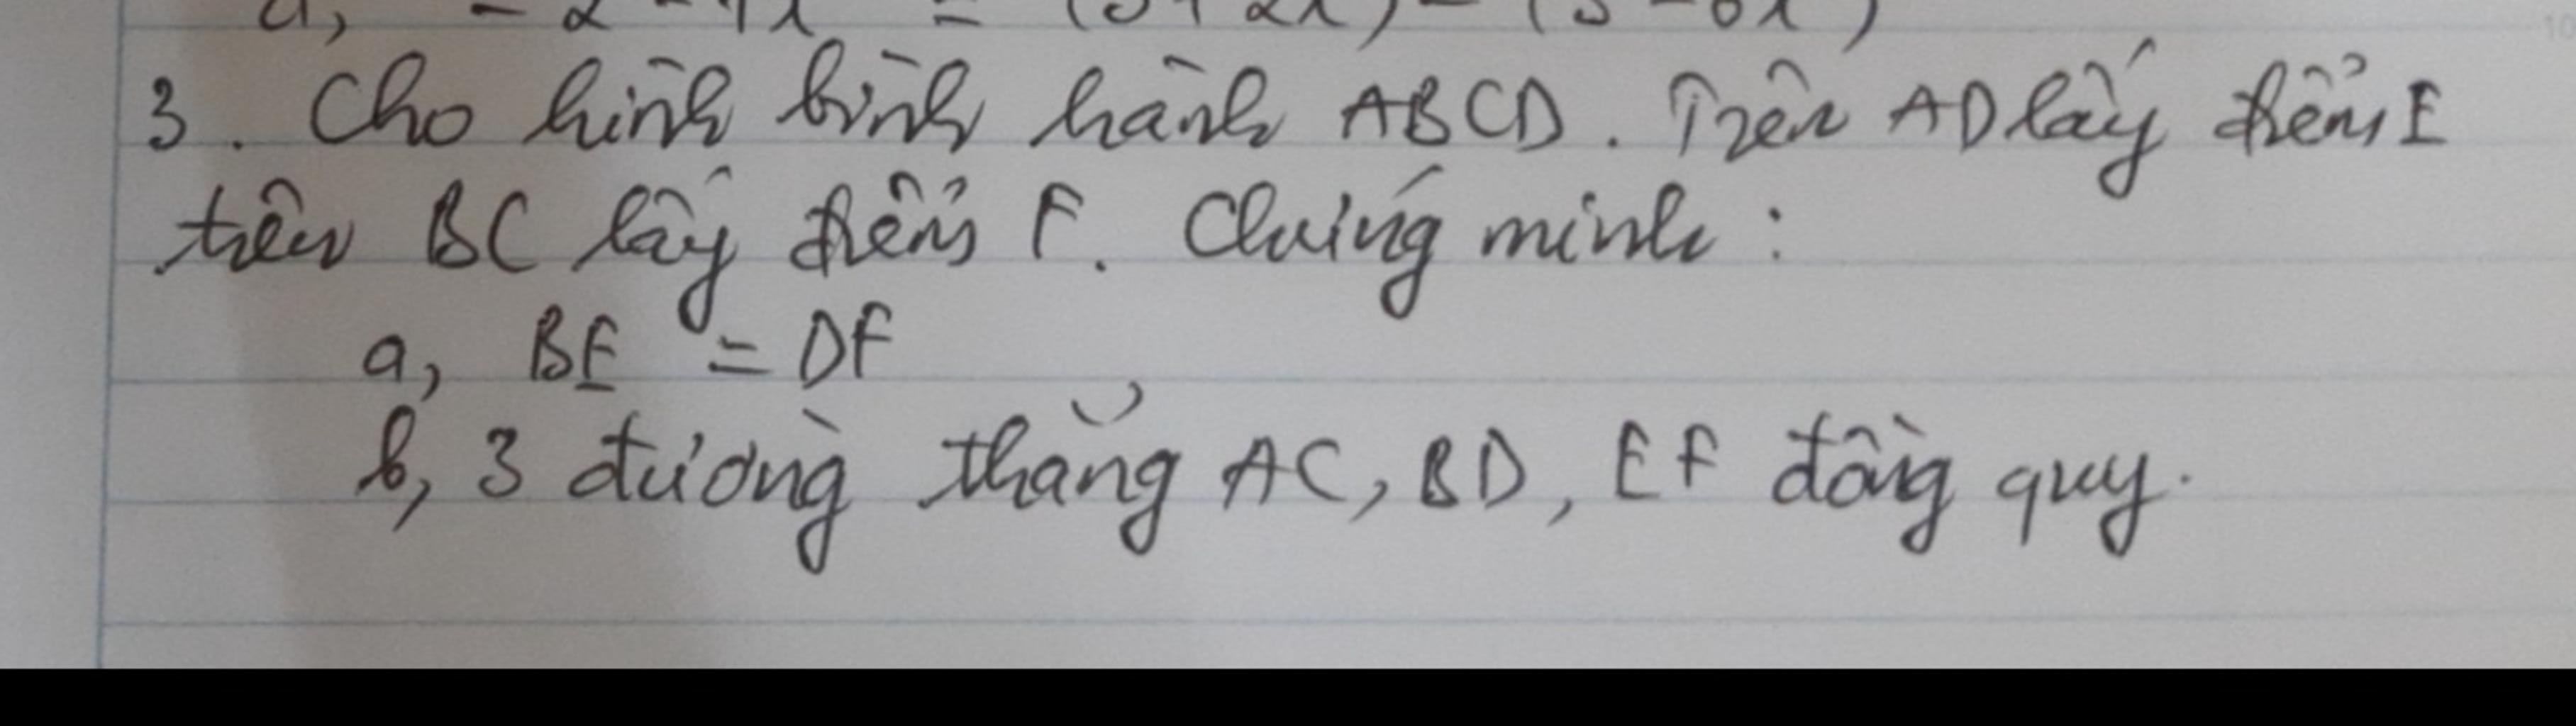 3. Cho hình bình hành ABCD. Trên AD lấy điểm E
trên BC lấy điểm F. Chứng minh:
a, BE = DF
b, 3 đường thẳng AC, BD, EF đồng quy.